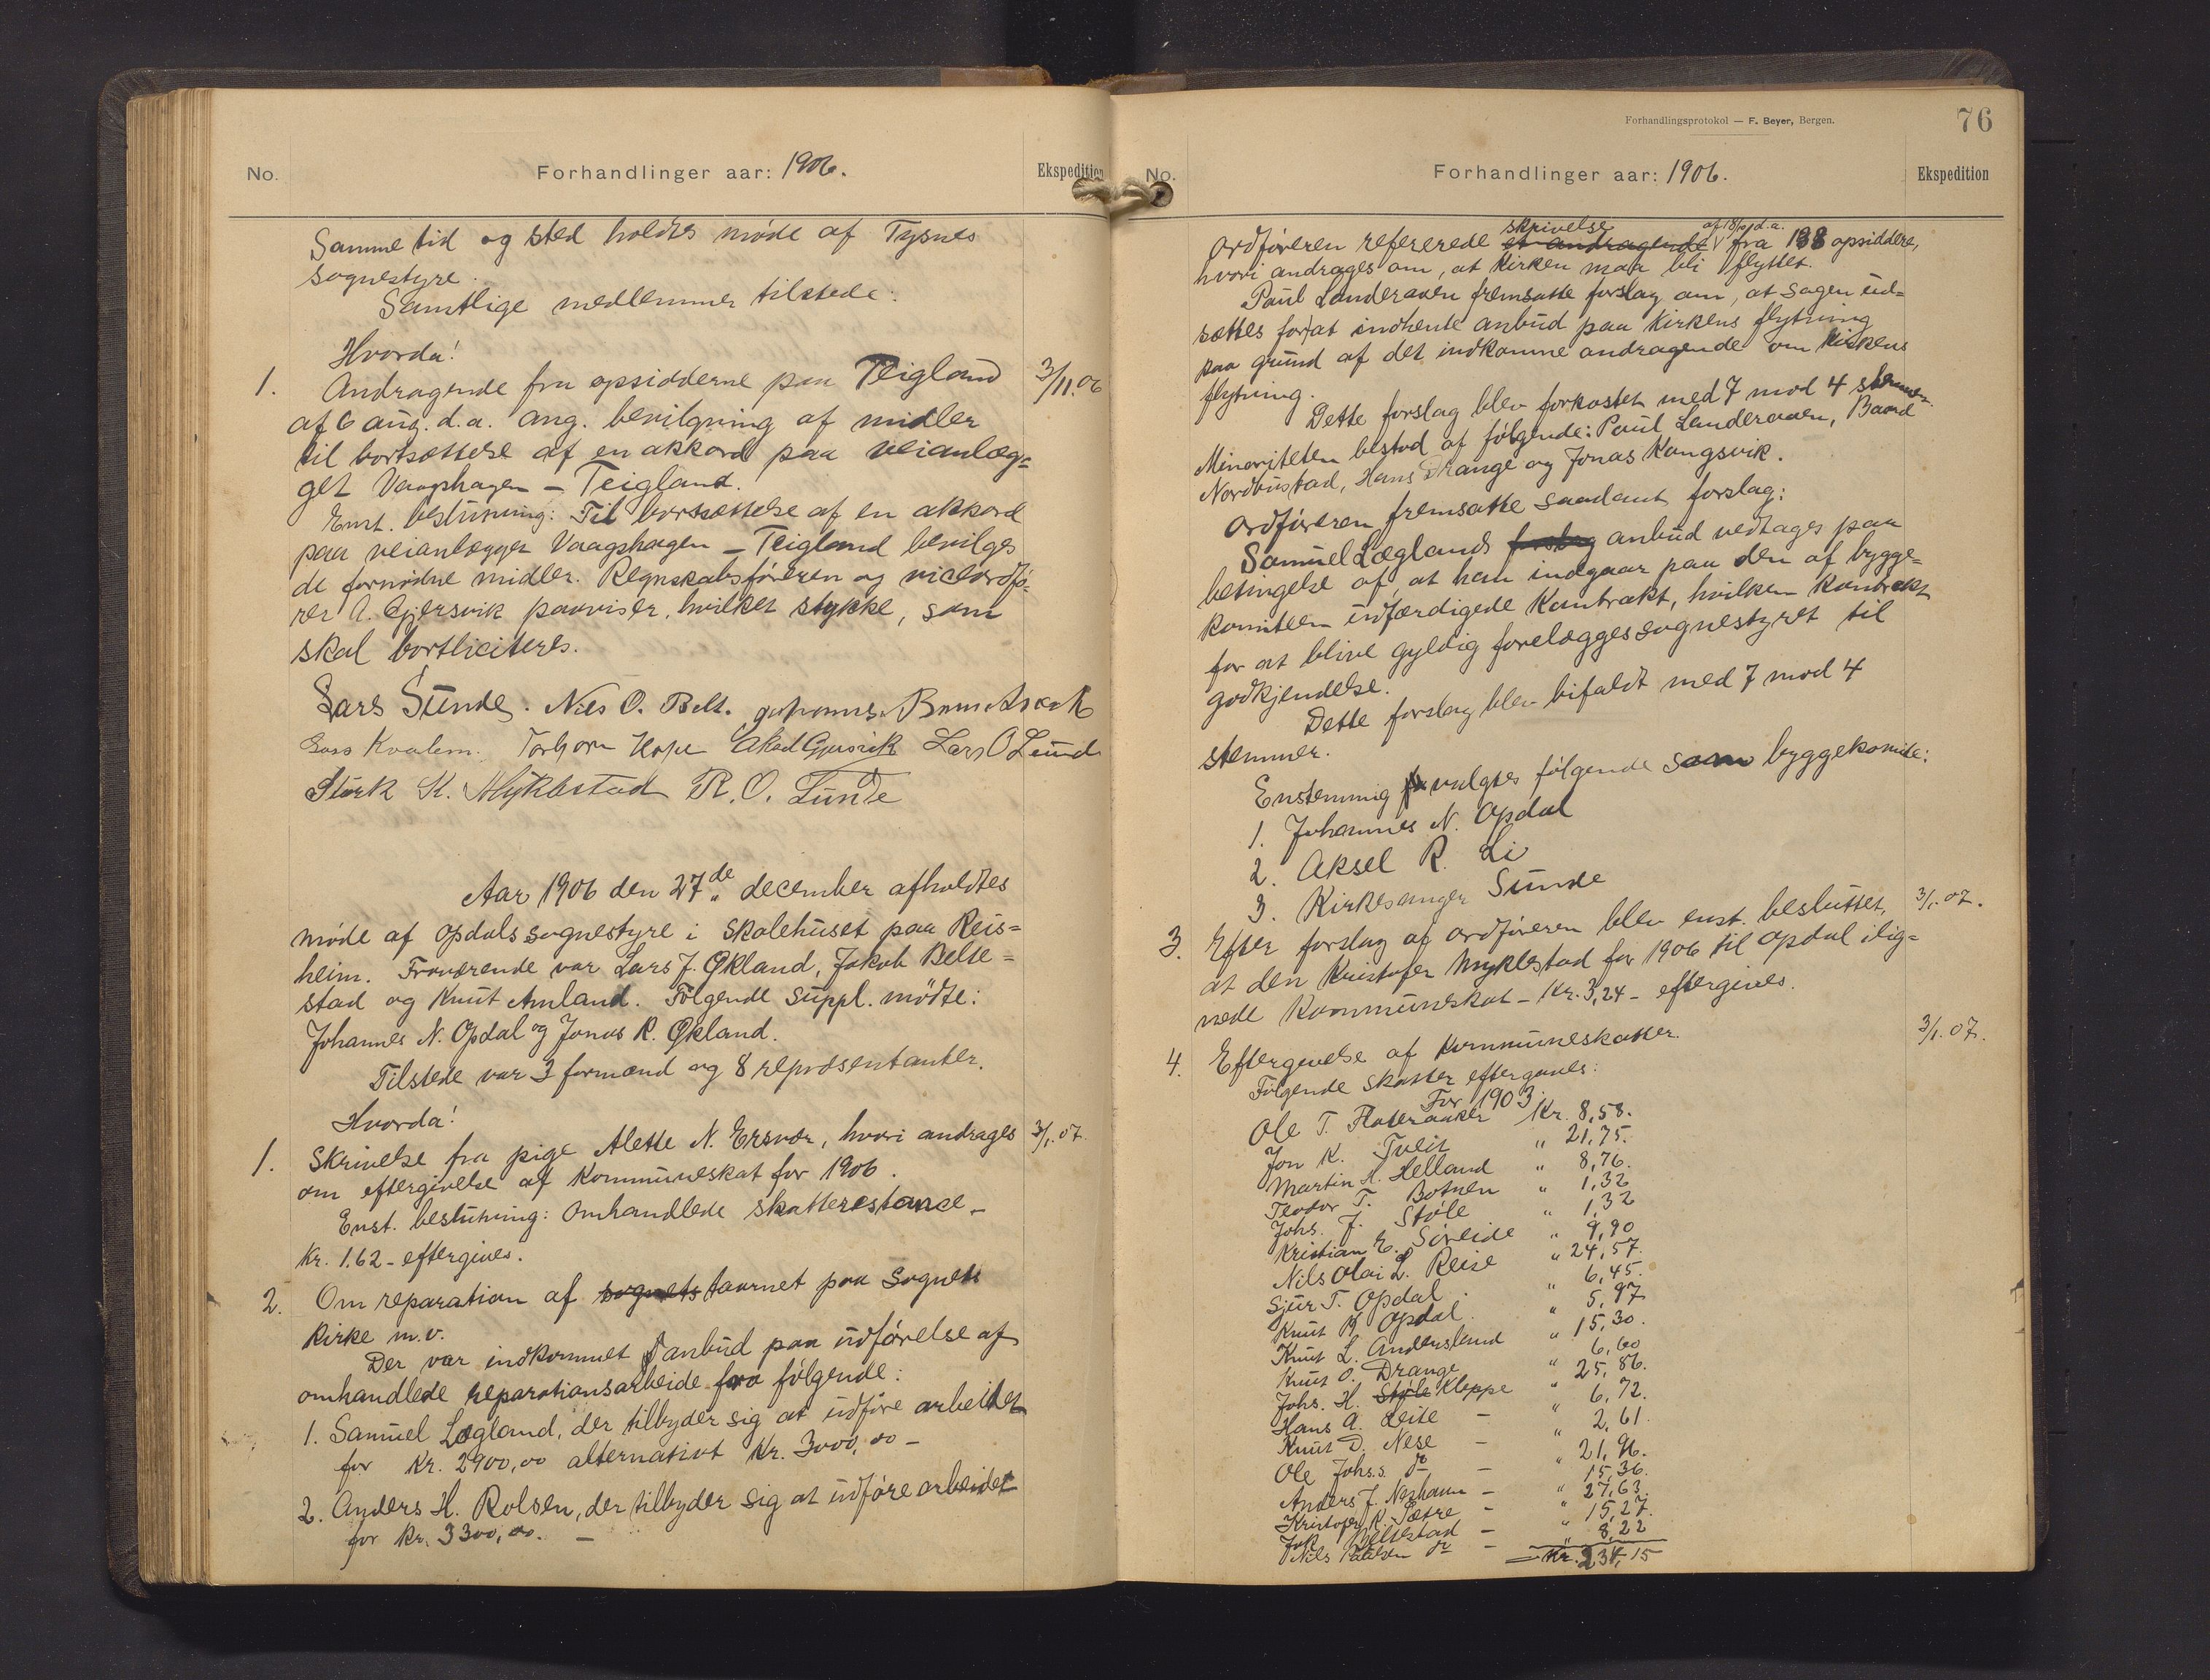 No.
Forhandlinger aar: 1906.
Ekspedition
Samme tid og sted holdtes møde af Tysnes
sognestyre.
Samtlige medlemmer tilstede.
Hvorda!
1. Andragende fra opsidderne paa Teigland 3/11.06
af 6 aug. d.a. ang. bevilgning af midler
til bortsættelse af en akkord paa veianlæg=
get Vaagshagen – Teigland.
Enst. beslutning: Til bortsættelse af en akkord
paa veianlægget Vaagshagen – Teigland bevilges
de fornødne midler. Regnskabsføreren og viceordfø-
rer A. Gjersvik paaviser, hvilket stykke, som
skal bortliciteres.
Lars Sunde. Niels O. Belt.
Lars Kvalem. Torbjørn Hope Aksel Gjersvik Lars O Lunde
Størk K. Myklestad R. O. Lunde
Aar 1906 den 27de december afholdtes
møde af Opdals sognestyre i skolehuset paa Reis=
heim. Fraværende var Lars J. Økland, Jakob Belte=
stad og Knut Amland. Følgende suppl. mødte:
Johannes N. Opdal og Jonas R. Økland.
Tilstede var 3 formænd og 8 repræsentanter.
Hvorda!
1. Skrivelse fra pige Alette N. Ersvær, hvori andrages 3/1.07.
om eftergivelse af kommuneskat for 1906.
Enst. beslutning: Omhandlede skatterestance –
Kr. 1.62 – eftergives.
2. Om reparation af sognets taarnet paa Sognets
kirke m.v.
Der var indkommet anbud paa udførelse af
omhandlede reparationsarbeide fra følgende:
1. Samuel Lægland, der tilbyder sig at udføre arbeidet
for Kr. 2900,00 alternativt Kr. 3000,00 –
2. Anders H. Rolsen, der tilbyder sig at udføre arbeidet
for Kr. 3300,00. –
Forhandlingsprotokol — F. Beyer, Bergen.
76
No.
Forhandlinger aar: 1906.
Ekspedition
skrivelse af 18/10 d.a.
Ordføreren refererede et andragende fra 188 opsiddere,
hvori andrages om, at kirken maa bli flyttet.
Paul Landeraaen fremsatte forslag om, at sagen ud=
sættes for at indhente anbud paa kirkens flytning
paa grund af det indkomne andragende om kirkens
flytning.
Dette forslag blev forkastet med 7 mod 4 stemmer.
Minoriteten bestod af følgende: Paul Landeraaen, Baard
Nordbustad, Hans Drange og Jonas Kongsvik.
Ordføreren fremsatte saadant forslag:
Samuel Læglands forslag anbud vedtages paa
betingelse af, at han indgaar paa den af bygge=
komiteen udfærdigede kontrakt, hvilken kontrakt
for at blive gyldig forelægges sognestyret til
godkjendelse.
Dette forslag blev bifaldt med 7 mod 4
stemmer.
Enstemmig valgtes følgende som byggekomite:
1. Johannes N. Opdal
2. Aksel R. Li
3. Kirkesanger Sunde
3. Efter forslag af ordføreren blev enst. besluttet, 3/1.07.
at den Kristofer Myklestad for 1906 til Opdal ilig=
nede kommuneskat – Kr. 3,24 – eftergives.
4. Eftergivelse af kommuneskatter. 3/1.07.
Følgende skatter eftergives:
For 1903.
Ole T. Flateraaker Kr. 8,58.
Jon K. Tveit " 21,75.
Martin A. Helland " 8,76.
Teodor T. Botnen " 1,32
Johs. J. Støle " 1,32
Kristian E. Søreide " 9,90
Nils Olai L. Reise " 24,57.
Sjur T. Opdal " 6,45.
Knut Opdal " 5,97
Knut L. Andersland " 15,30.
Knut O. Drange " 6,60
Johs. H. Støle Kleppe " 25,86.
Hans A. Leite – " 6,72.
Knut D. Nese – " 2,61.
Ole Johs.s. do – " 21,96.
Anders J. – 15,36.
Kristofer K. Sætre – " 27,63.
Jak Beltestad – " 15,27.
Nils do – " 8,22
Kr. 234,15